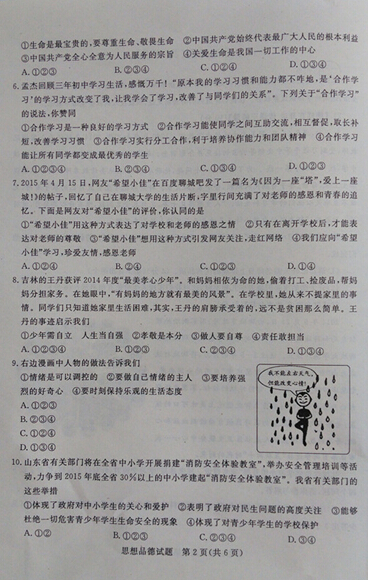 ①生命是最宝贵的,要尊重生命、敬畏生命 ②中国共产党始终代表最广大人民的根本利益
③中国共产党全心全意为人民服务的宗旨 ④关爱生命是我国一切工作的中心
A. ①②③ B. ②③④ C. ①③④ D. ①②④
6. 孟杰回顾三年初中学习生活,感慨万千!“原本我的学习习惯和能力都不咋地,是‘合作学
习’的学习方式改变了我,让我学会了学习,改善了与同学们的关系”。下列关于“合作学习”
的说法,你赞同
①合作学习是一种良好的学习方式 ②合作学习能使同学之间互助交流,相互督促,取长补
短,改善学习习惯 ③合作学习实行分工合作,利于培养协作能力和团队精神 ④合作学习
能让所有同学都变成最优秀的学生
A. ①②③④ B. ②③④ C. ①③④ D. ①②③
7. 2015年4月15日,网友“希望小佳”在百度聊城吧发了一篇名为《因为一座“塔”,爱上一座
城!》的帖子,回忆了自己在聊城大学的生活片断,字里行间充满了对老师的感恩和青春的追
忆。下面是网友对“希望小佳”的评价,你认同的是
①“希望小佳”用这种方式表达了对学校和老师的感恩之情 ②只有在离开学校后,才能表
达对老师的尊敬 ③“希望小佳”想用这种方式引发网友关注,走红网络 ④我们应向“希望
小佳”学习,珍爱友情,感恩老师
A. ①②④ B. ②③④ C. ①②③ D. ①④
8. 吉林的王丹获评2014年度“最美孝心少年”。和妈妈相依为命的她,偷着打工、捡废品,帮妈
妈分担家务。在她眼中,“有妈妈的地方就有最美的风景”。在学校里,她从来不提家里的事
情。同学们只知道她家里生活困难,其实,王丹的肩膀承受着的,远不是贫困那么简单。王
丹的事迹启示我们
①少年需自立 人生当自强 ②孝敬是本分 ③做人要自尊 ④责任敢担当
A. ①②③④ B. ②③④ C. ①②③ D. ①③④
9. 右边漫画中人物的做法告诉我们
①情绪是可以调控的 ②要做自己情绪的主人 ③要培养强
烈的好奇心 ④要时刻保持乐观的生活态度
A. ①②③
B. ②③④
C. ①②④
D. ①③④
我不能左右天气,
但能改变心情!
10. 山东省有关部门将在全省中小学开展捐建“消防安全体验教室”,举办安全管理培训等活
动,力争到2015年底全省30%以上的中小学建起“消防安全体验教室”。我省有关部门的
这些举措
①体现了政府对中小学生的关心和爱护 ②表明了政府对民生问题的高度关注 ③能够
杜绝一切危害青少年学生生命安全的现象 ④体现了对青少年学生的学校保护
A. ①② B. ②③④ C. ①②③ D. ①③④
思想品德试题 第2页(共6页)